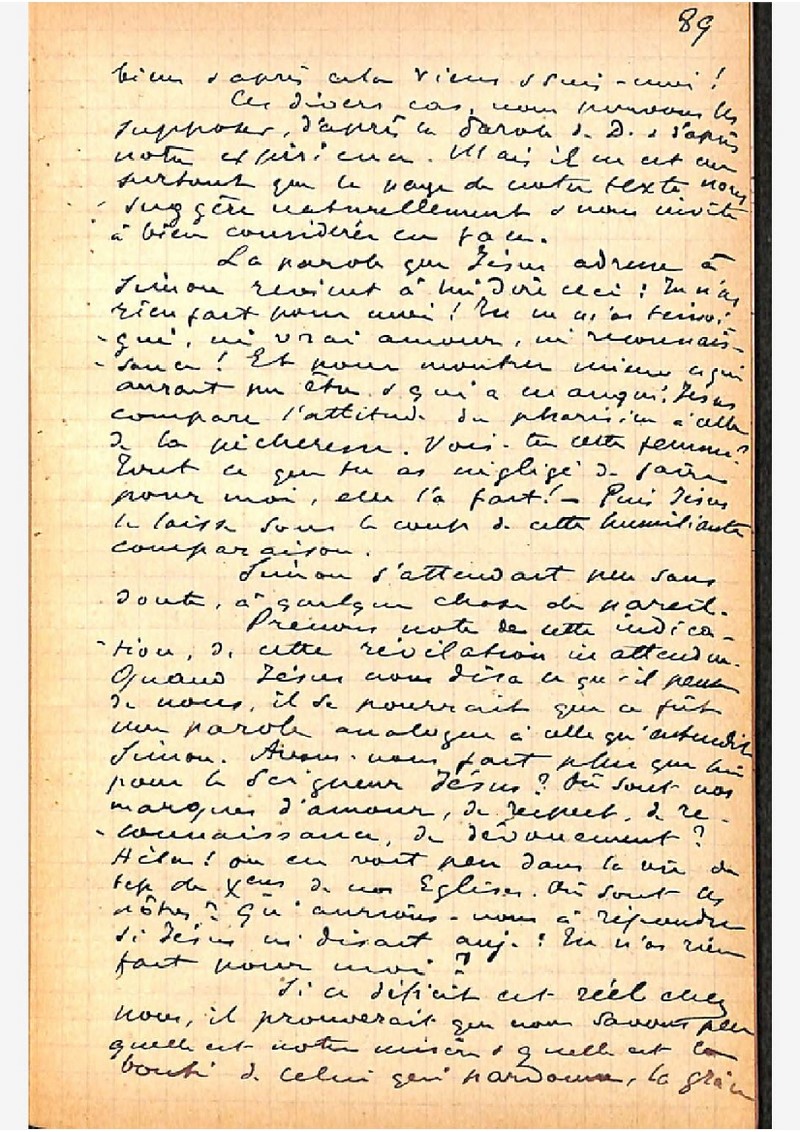 89
biens & après cela viens & suis-moi !
Ces divers cas, nous pouvons les
supposer, d'après la Parole de D. & d'après
notre expérience. Mais il en est un
surtout que la page de notre texte nous
suggère naturellement & nous invite
à bien considérer en face.
La parole que Jésus adresse à
Simon revient à lui dire ceci : Tu n'as
rien fait pour moi ! Tu ne m'as témoi-
gné, ni vrai amour, ni reconnais-
sance ! Et pour montrer mieux ce qui
aurait pu être & qui a manqué, Jésus
compare l'attitude du pharisien à celle
de la pécheresse. Vois-tu cette femme ?
Tout ce que tu as négligé de faire
pour moi, elle l'a fait ! – Puis Jésus
le laisse sous le coup de cette humiliante
comparaison.
Simon s'attendait peu sans
doute, à quelque chose de pareil.
Prenons note de cette indica-
tion, de cette révélation inattendue.
Quand Jésus nous dira ce qu'il pense
de nous, il se pourrait que ce fût
une parole analogue à celle qu'entendit
Simon. Avons-nous fait plus que lui
pour le Seigneur Jésus ? Où sont nos
marques d'amour, de respect, de re-
connaissance, de dévouement ?
Hélas ! on en voit peu dans la vie de
bcp de Xens de nos Eglises. Où sont les
nôtres ? Qu'aurions-nous à répondre
si Jésus ns disait auj. : Tu n'as rien
fait pour moi ?
Si ce déficit est réel chez
nous, il prouverait que nous savons peu
quelle est notre misère & quelle est la
bonté de celui qui pardonne, la grâce